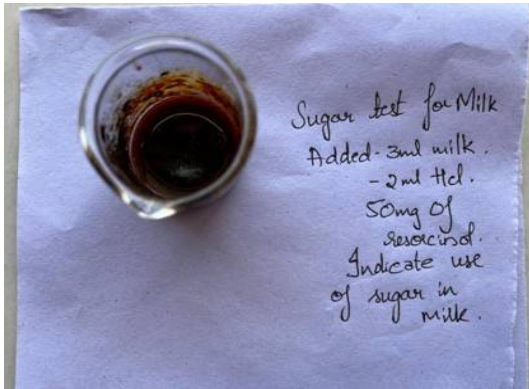 Sugar test for Milk
Added - 3ml milk.
- 2ml Hcl.
50mg of
resorcinol.
Indicate use
of sugar in
milk.